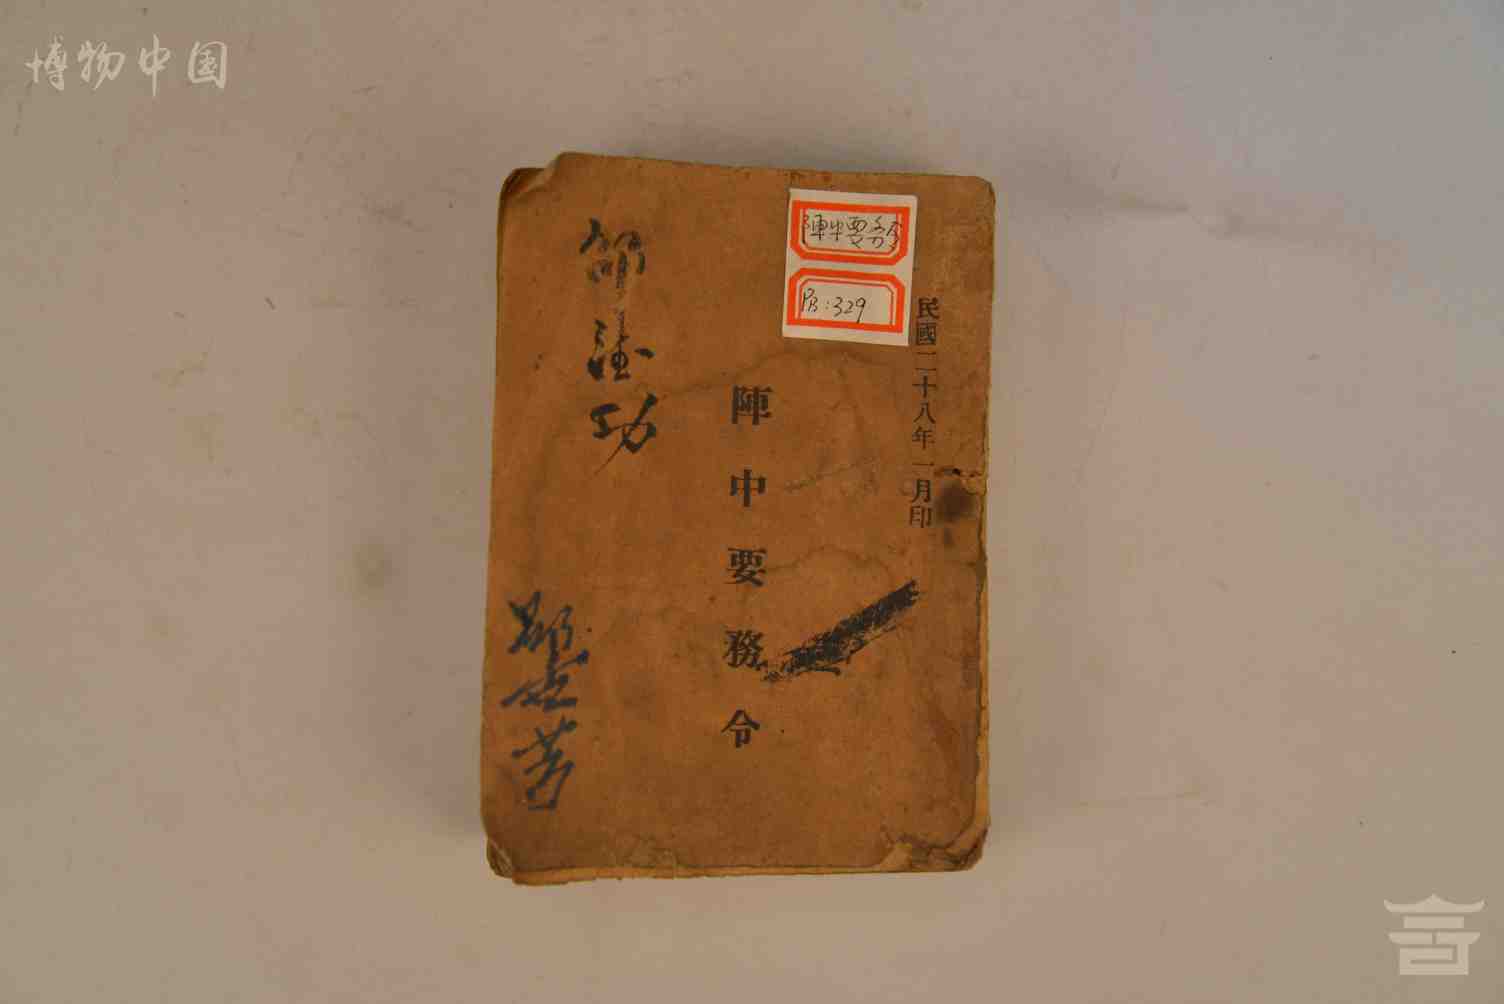 博物中国
陣中要务令
PB:329
民國二十八年一月印
陣中要務令